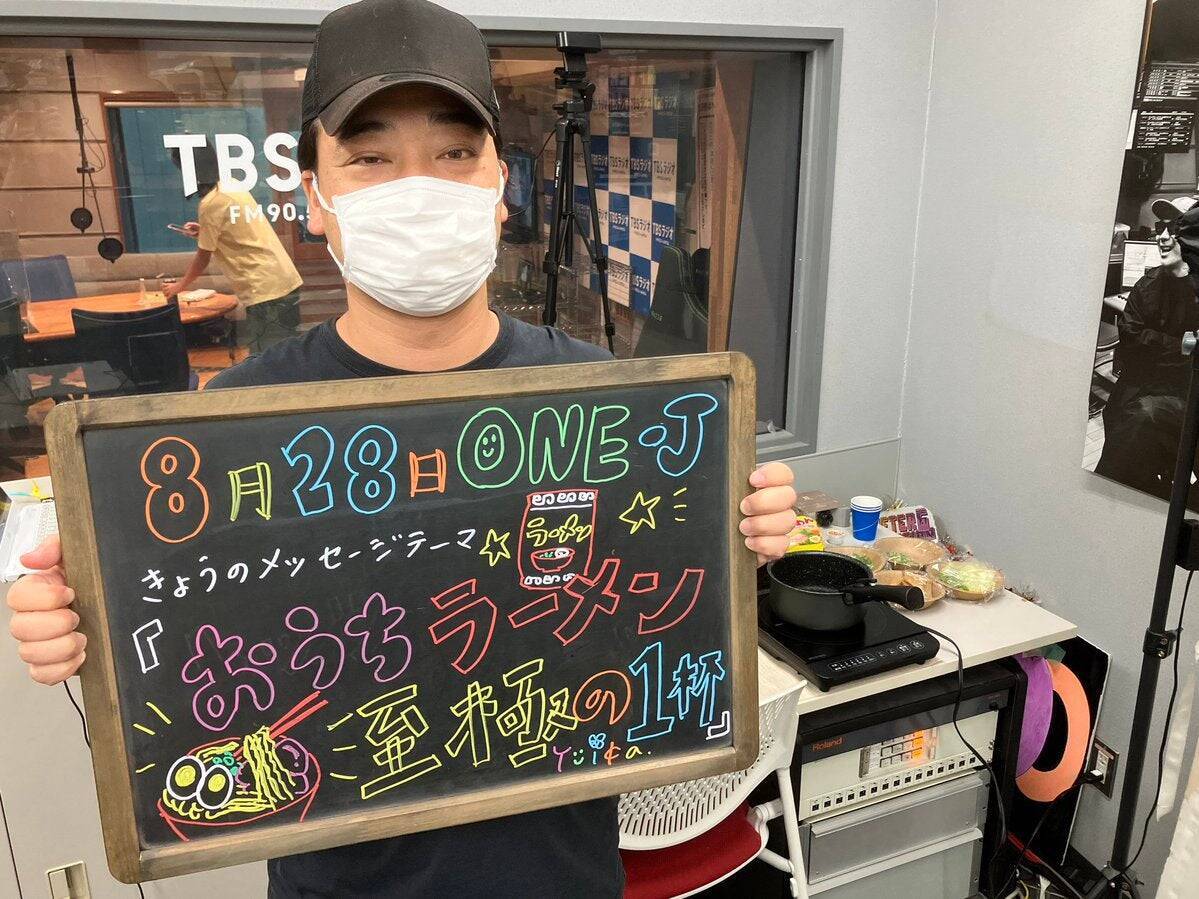 TBS
FM90.5
TBSラジオ
8月28日 ONE-J
きょうのメッセージテーマ
ラーメン
『おうちラーメン
至極の1杯』
Yuika.
Roland